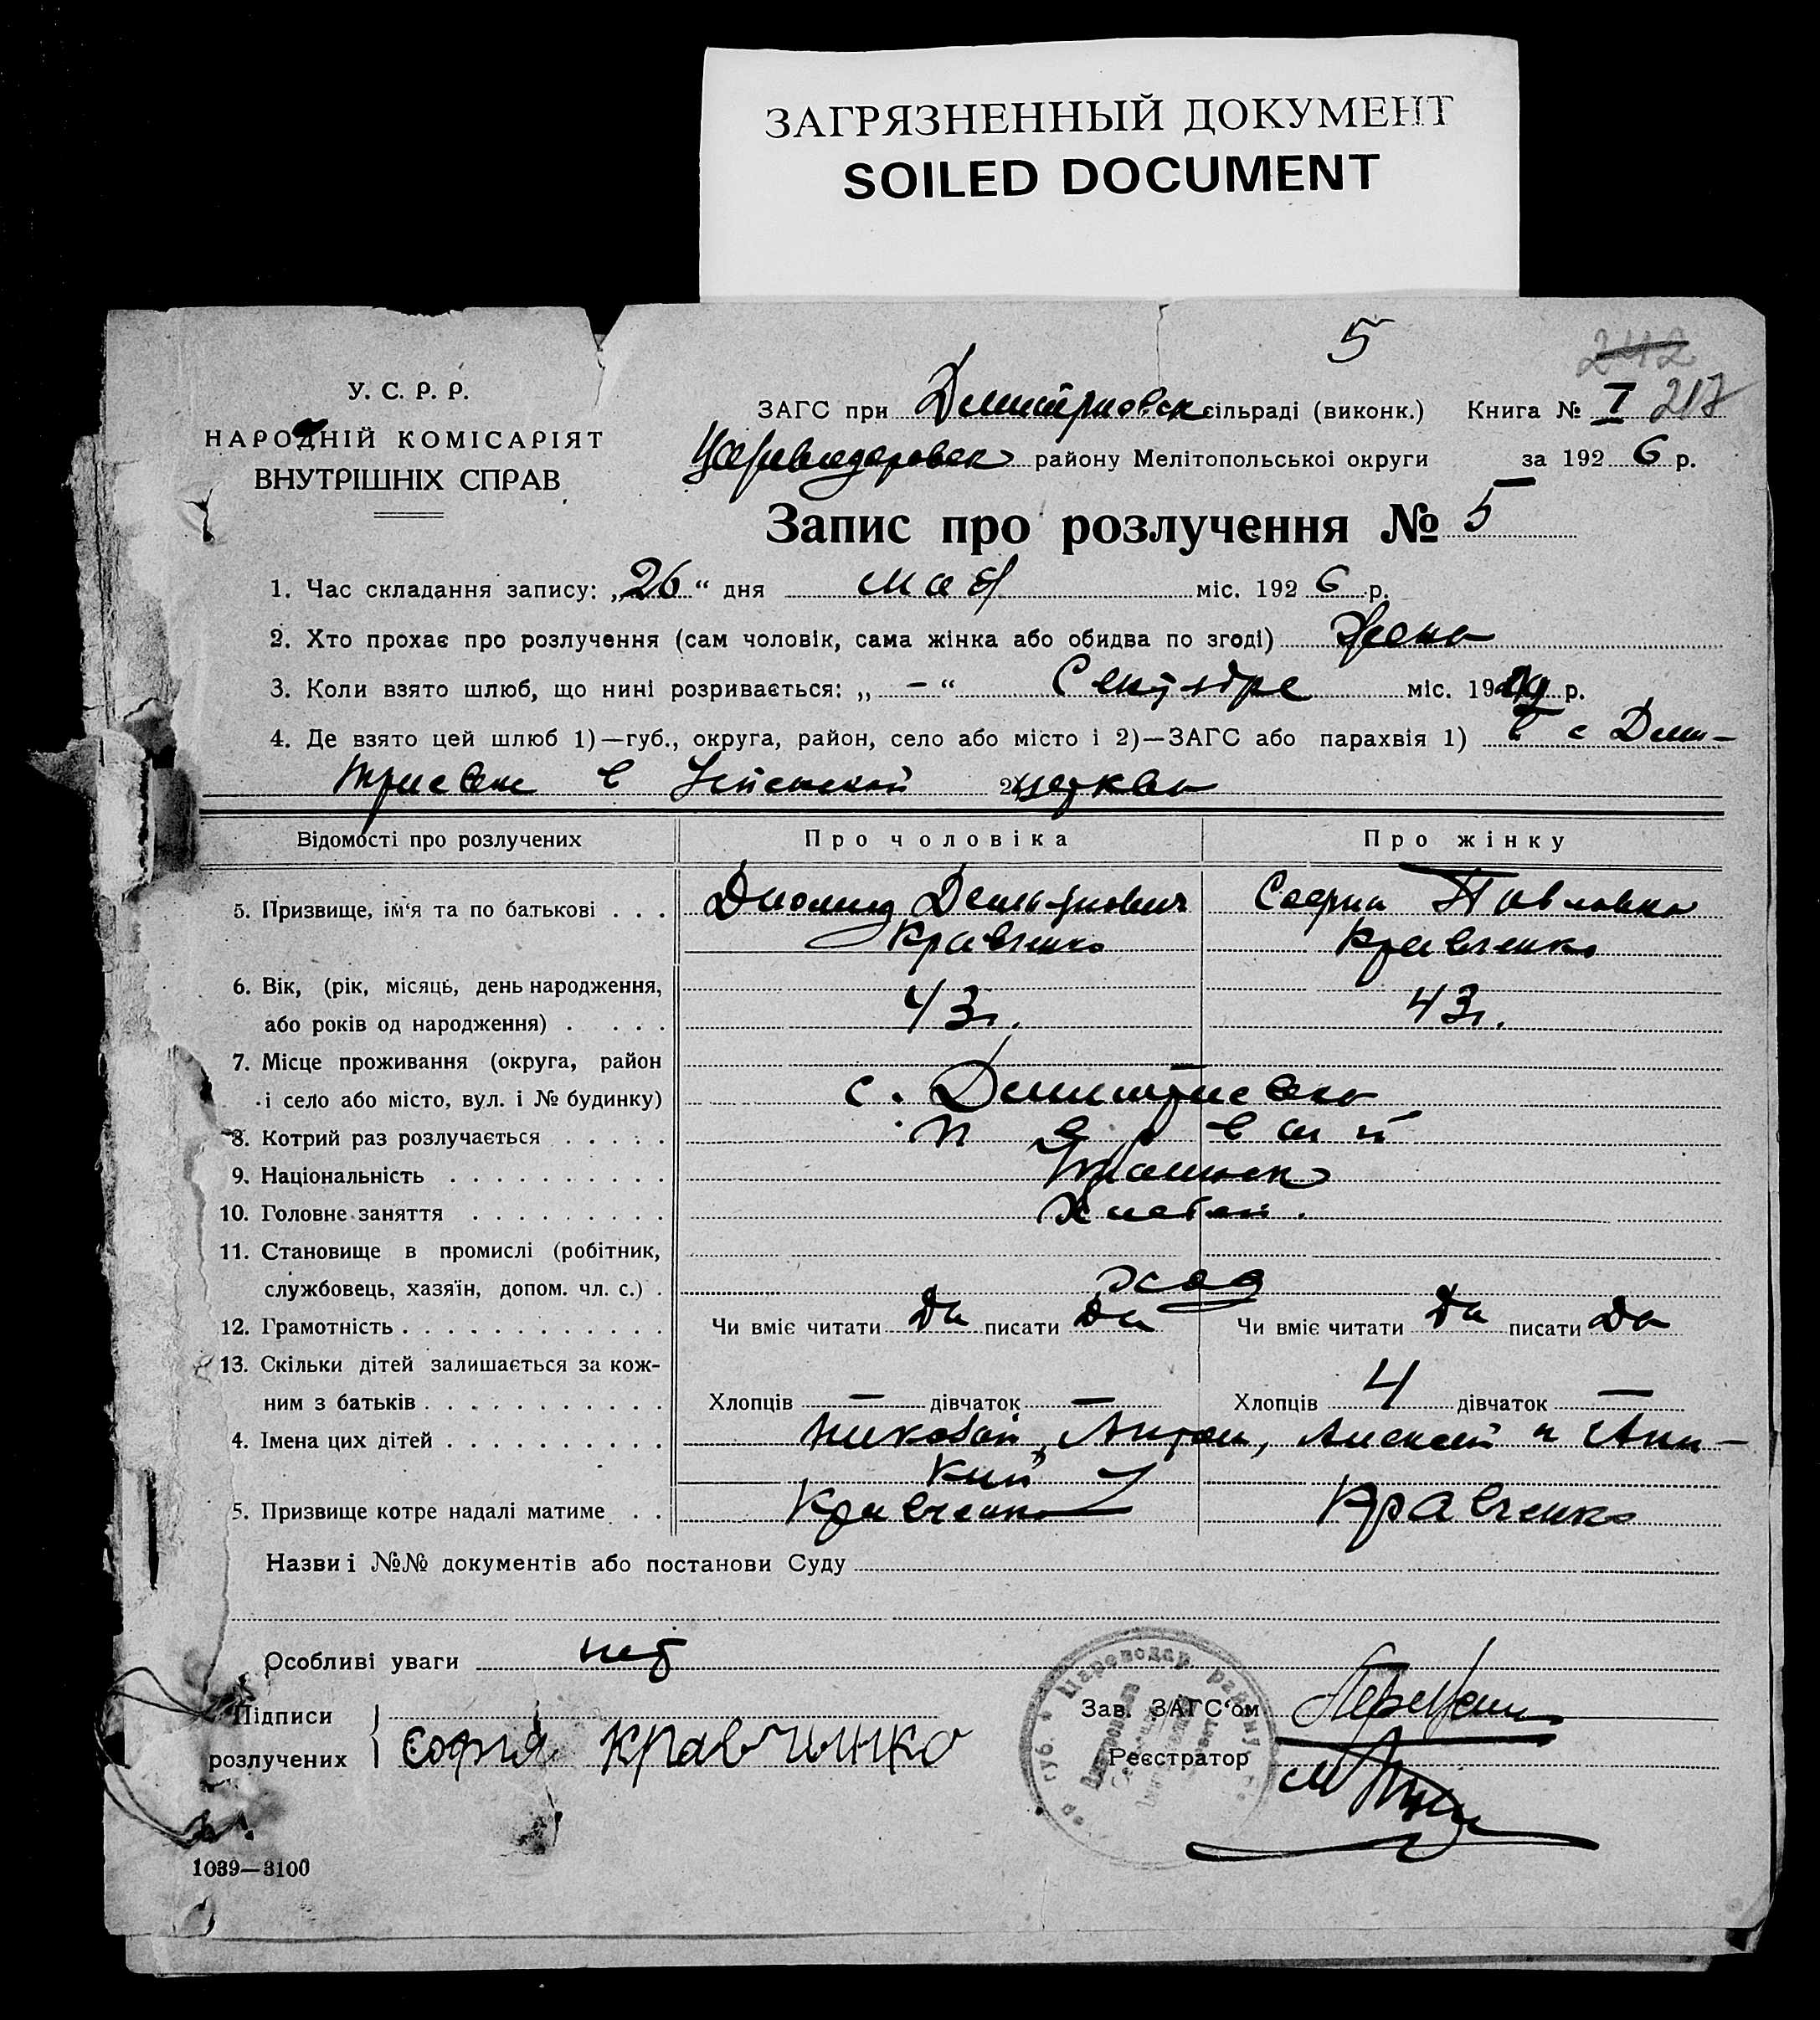 ЗАГРЯЗНЕННЫЙ ДОКУМЕНТ
SOILED DOCUMENT
5
242
У. С. Р. Р.
НАРОДНІЙ КОМІСАРІЯТ
ВНУТРІШНІХ СПРАВ
ЗАГС при Дмитриовск сільраді (виконк.) Книга № I 217
Цареводаровск району Мелітопольської округи за 1926 р.
Запис про розлучення № 5
1. Час складання запису: „26“ дня мая міс. 1926 р.
2. Хто прохає про розлучення (сам чоловік, сама жінка або обидва по згоді) Жена
3. Коли взято шлюб, що нині розривається: „ – “ Сентябре міс. 19 р.
4. Де взято цей шлюб 1)—губ., округа, район, село або місто і 2)—ЗАГС або парахвія 1) в с Дми-
триевке в Успенской 2) церкви
Відомості про розлучених Про чоловіка Про жінку
5. Призвище, ім‘я та по батькові . . . Диомид Демьянович София Павловна
Кравченко Кравченко
6. Вік, (рік, місяць, день народження,
або років од народження) . . . . 43 г. 43 г.
7. Місце проживання (округа, район
і село або місто, вул. і № будинку) с. Дмитриевка
8. Котрий раз розлучається . . . . . первый
9. Національність . . . . . . . . . .
10. Головне заняття . . . . . . . . . Хлебоп.
11. Становище в промислі (робітник,
службовець, хазяїн, допом. чл. с.) .
12. Грамотність . . . . . . . . . . . . Чи вміє читати да писати да Чи вміє читати да писати да
13. Скільки дітей залишається за кож-
ним з батьків . . . . . . . . . . . Хлопців — дівчаток — Хлопців 4 дівчаток —
4. Імена цих дітей . . . . . . . . . . Николай, Антон, Алексей и Ани-
кий
5. Призвище котре надалі матиме . . Кравченко Кравченко
Назви і №№ документів або постанови Суду
Особливі уваги нет
Підписи
розлучених София кравчинко
Зав. ЗАГС‘ом
Реєстратор
1039—3100